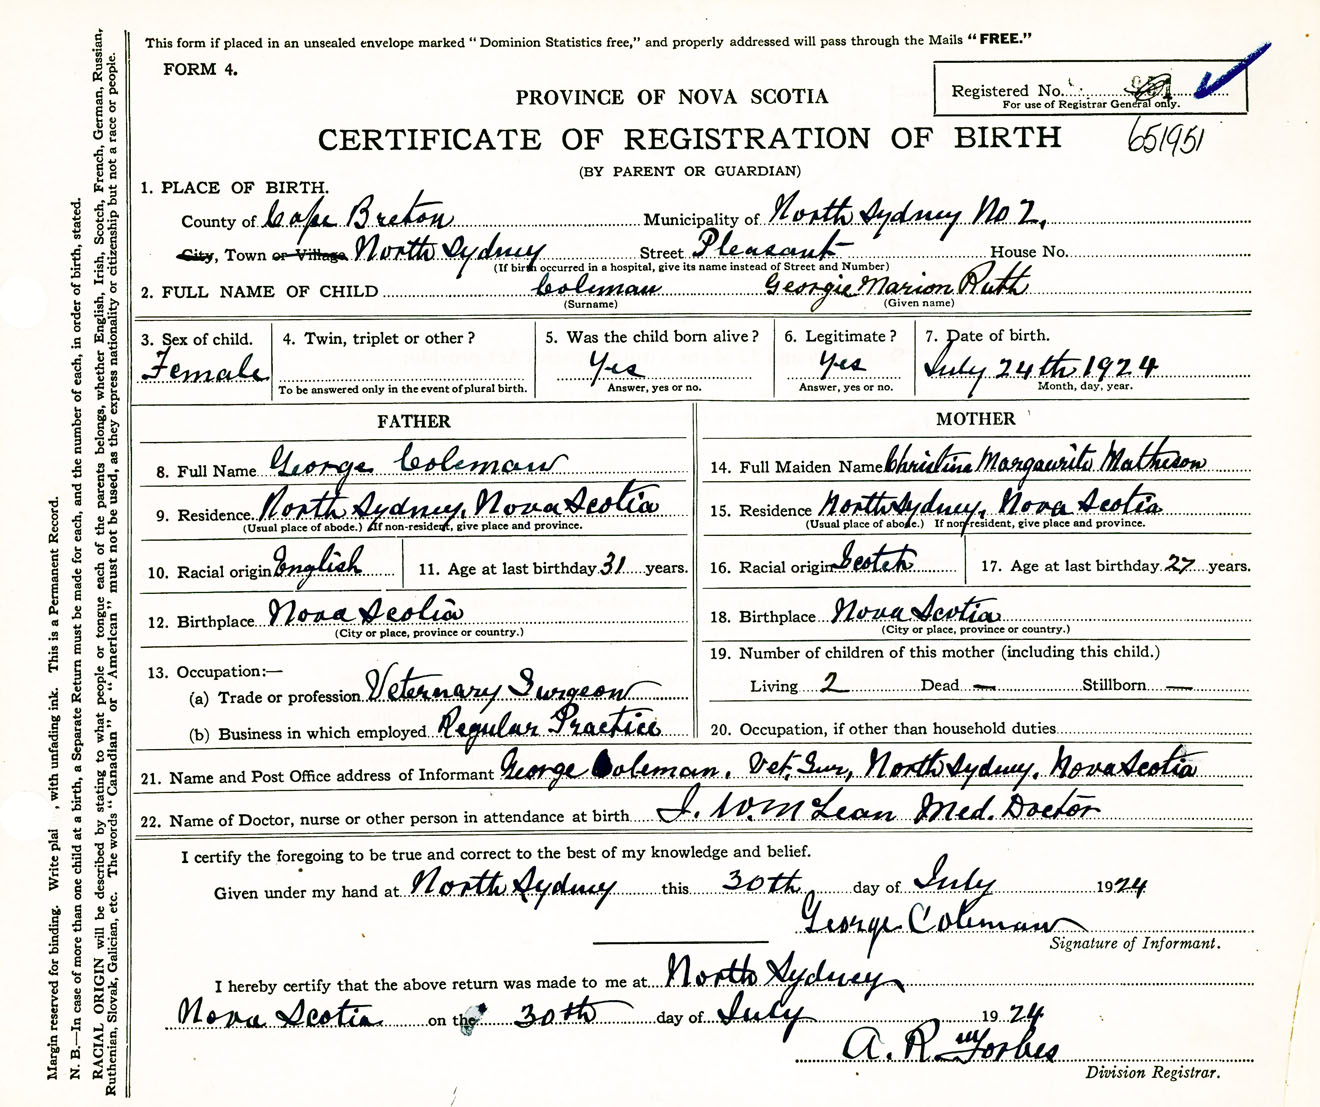 This form if placed in an unsealed envelope marked "Dominion Statistics free," and properly addressed will pass through the Mails "FREE."
FORM 4.
Registered No.
For use of Registrar General only.
PROVINCE OF NOVA SCOTIA
CERTIFICATE OF REGISTRATION OF BIRTH
651951
(BY PARENT OR GUARDIAN)
1. PLACE OF BIRTH.
County of Cape Breton Municipality of North Sydney No 2,
City, Town or Village North Sydney Street Pleasant House No.
(If birth occurred in a hospital, give its name instead of Street and Number)
2. FULL NAME OF CHILD Coleman Georgie Marion Ruth
(Surname) (Given name)
3. Sex of child. 4. Twin, triplet or other? 5. Was the child born alive? 6. Legitimate? 7. Date of birth.
Female Yes Yes July 24th 1924
To be answered only in the event of plural birth. Answer, yes or no. Answer, yes or no. Month, day, year.
FATHER
8. Full Name George Coleman
9. Residence North Sydney, Nova Scotia
(Usual place of abode.) If non-resident, give place and province.
10. Racial origin English 11. Age at last birthday 31 years.
12. Birthplace Nova Scotia
(City or place, province or country.)
13. Occupation:—
(a) Trade or profession Veternary Surgeon
(b) Business in which employed Regular Practice
MOTHER
14. Full Maiden Name Christine Margaurite Matheson
15. Residence North Sydney, Nova Scotia
(Usual place of abode.) If non-resident, give place and province.
16. Racial origin Scotch 17. Age at last birthday 27 years.
18. Birthplace Nova Scotia
(City or place, province or country.)
19. Number of children of this mother (including this child.)
Living 2 Dead — Stillborn —
20. Occupation, if other than household duties
21. Name and Post Office address of Informant George Coleman, Vet. Sur, North Sydney, Nova Scotia
22. Name of Doctor, nurse or other person in attendance at birth J. W. McLean Med. Doctor
I certify the foregoing to be true and correct to the best of my knowledge and belief.
Given under my hand at North Sydney this 30th day of July 1924
George Coleman
Signature of Informant.
I hereby certify that the above return was made to me at North Sydney
Nova Scotia on the 30th day of July 1924
A. R. Forbes
Division Registrar.
Margin reserved for binding. Write plai , with unfading ink. This is a Permanent Record.
N. B.—In case of more than one child at a birth, a Separate Return must be made for each, and the number of each, in order of birth, stated.
RACIAL ORIGIN will be described by stating to what people or tongue each of the parents belongs, whether English, Irish, Scotch, French, German, Russian,
Ruthenian, Slovak, Galician, etc. The words "Canadian" or "American" must not be used, as they express nationality or citizenship but not a race or people.